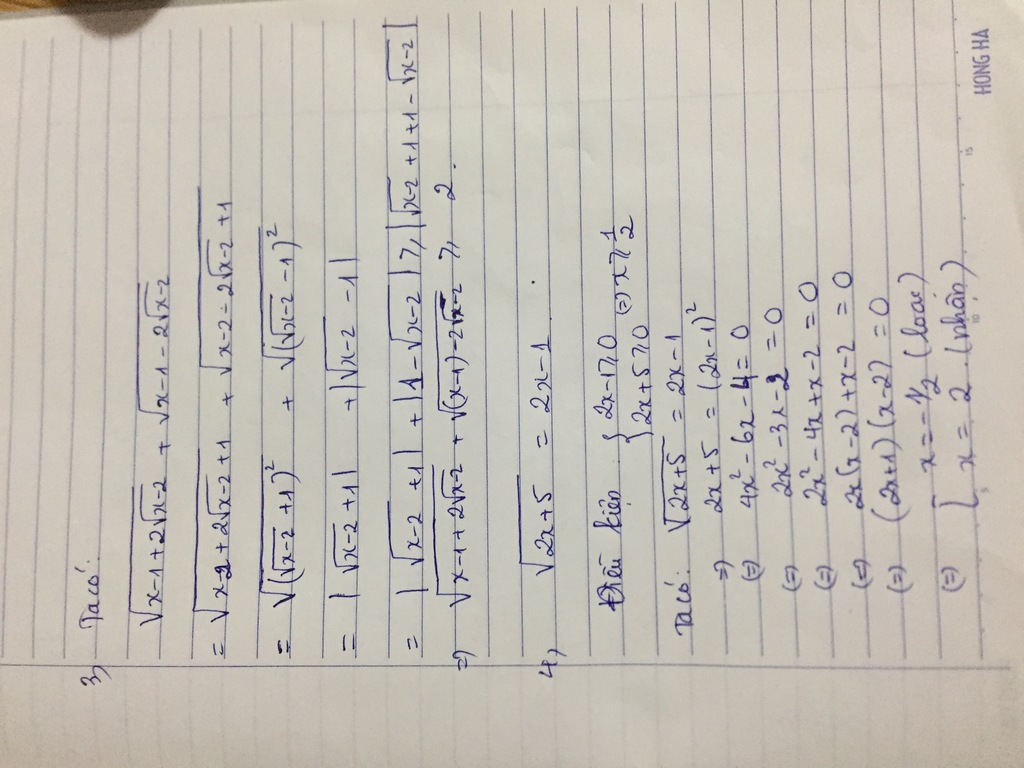 3, Ta có:
√(x-1+2√(x-2)) + √(x-1-2√(x-2))
= √(x-2+2√(x-2)+1) + √(x-2-2√(x-2)+1)
= √((√(x-2)+1)²) + √((√(x-2)-1)²)
= |√(x-2)+1| + |√(x-2)-1|
= |√(x-2)+1| + |1-√(x-2)| ≥ |√(x-2)+1+1-√(x-2)|
=> √(x-1+2√(x-2)) + √((x-1)-2√(x-2)) ≥ 2.
4, √(2x+5) = 2x-1.
Điều kiện { 2x-1≥0
{ 2x+5≥0 (=) x≥1/2
Ta có: √(2x+5) = 2x-1
=> 2x+5 = (2x-1)²
(=) 4x²-6x-4=0
(=) 2x²-3x-2=0
(=) 2x²-4x+x-2=0
(=) 2x(x-2)+x-2=0
(=) (2x+1)(x-2)=0
(=) [ x=-1/2 (loại)
[ x=2.(nhận)
5 10 15
HONG HA